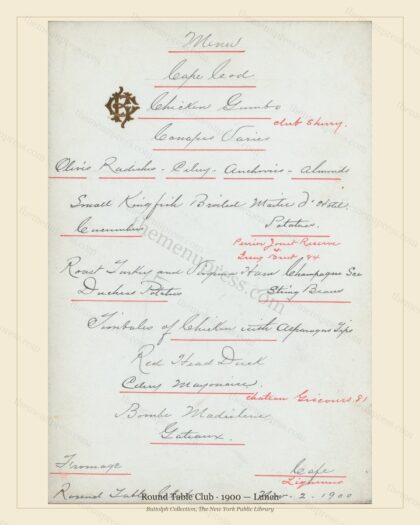 Menu
Cape Cod
Chicken Gumbo
Club Sherry.
Canapes Varies
Olives Radishes - Celery - Anchovies - Almonds
Small Kingfish Broiled Maitre d'Hotel
Cucumbers Potatoes.
Perrier Jouet Reserve
Brut 84
Roast Turkey and Virginian Ham Champagne Sce
Duchess Potatoes String Beans
Timbales of Chicken with Asparagus Tips
Red Head Duck
Celery Mayonaise.
Chateau Giscours 81
Bombe Madeleine
Gateaux.
Fromage Cafe
Liqueurs
Round Table Nov. 2. 1900
Round Table Club · 1900 — Lunch
Buttolph Collection, The New York Public Library
themenupress.com